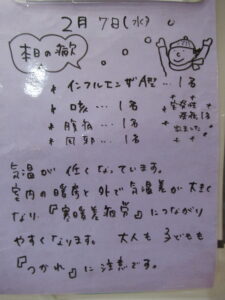 2月7日(水)
本日の欠
* インフルエンザA型 … 1名
* 咳 … 1名
* 腹痛 … 1名
* 風邪 … 1名
1名
出ました
気温が低くなっています。
室内の暖房と外で気温差が大きく
なり『寒暖差疲労』につながり
やすくなります。大人も子どもも
『つかれ』に注意です。